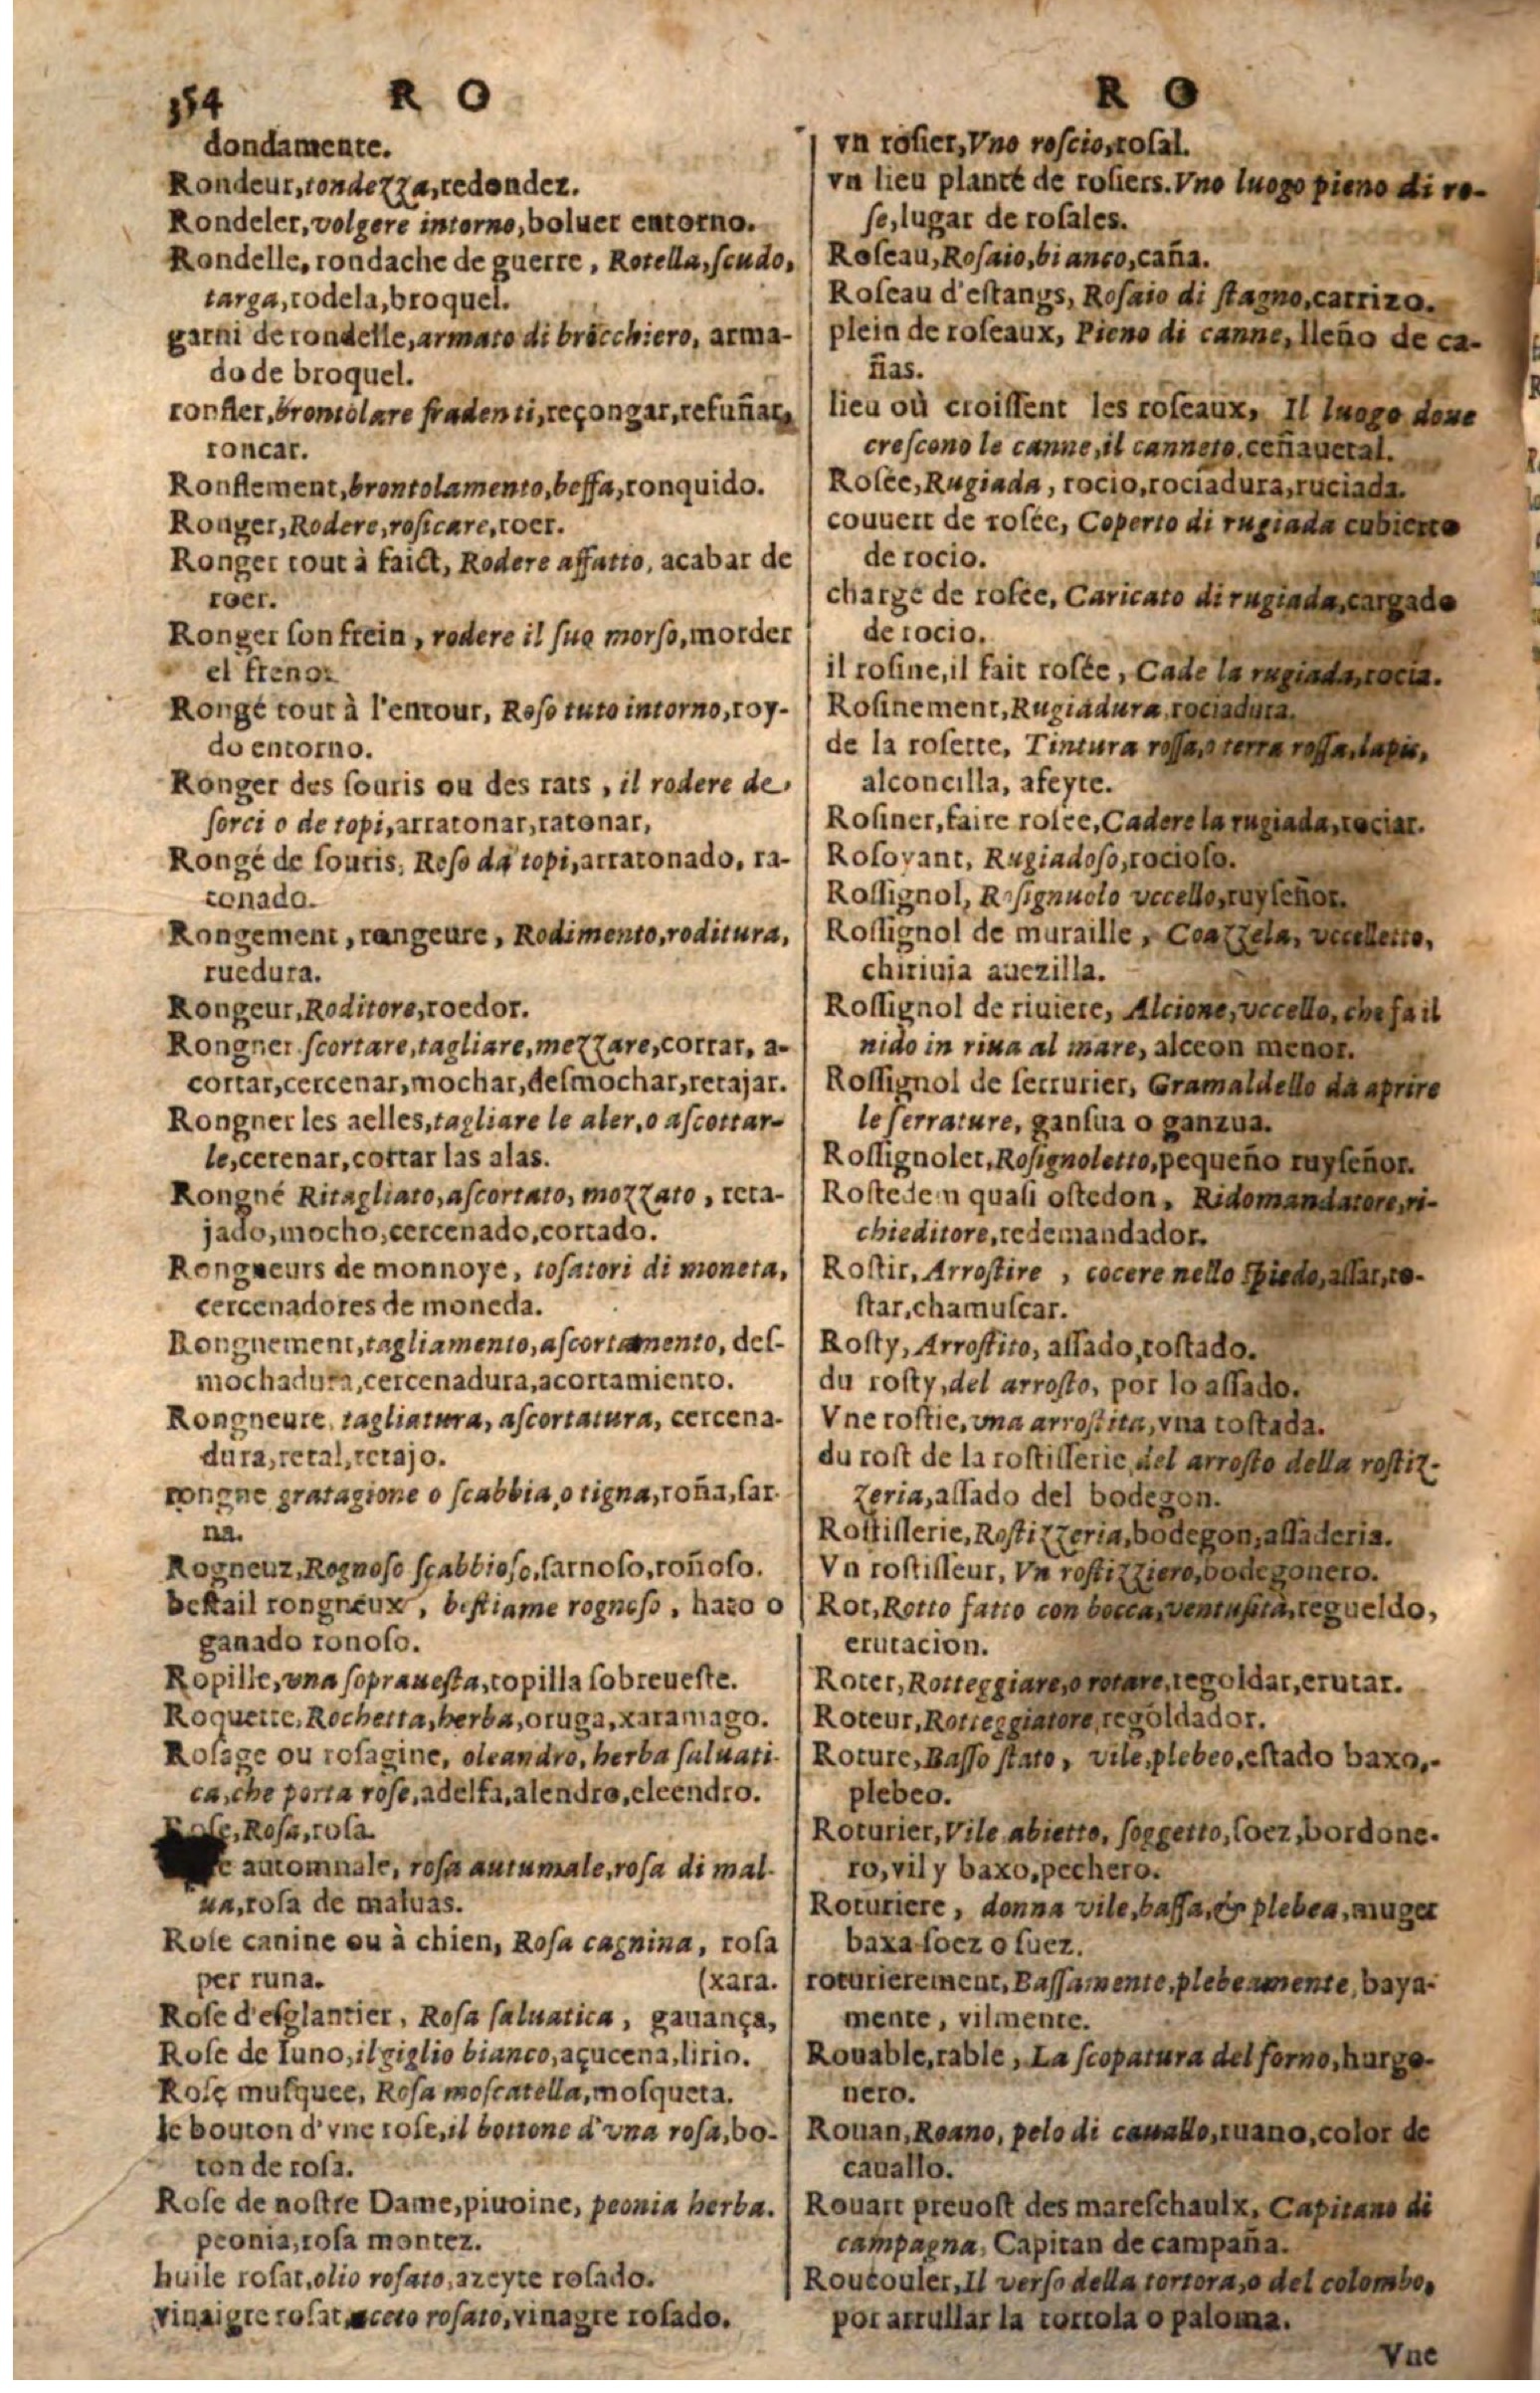 354 R O
dondamente.
Rondeur, tondezza, redondez.
Rondeler, volgere intorno, boluer entorno.
Rondelle, rondache de guerre, Rotella, ſcudo,
targa, rodela, broquel.
garni de rondelle, armato di brocchiero, arma-
do de broquel.
ronfler, brontolare fra denti, reçongar, refuñar,
roncar.
Ronflement, brontolamento, beffa, ronquido.
Ronger, Rodere, roſicare, roer.
Ronger tout à faict, Rodere affatto, acabar de
roer.
Ronger ſon frein, rodere il ſuo morſo, morder
el freno.
Rongé tout à l'entour, Roſo tuto intorno, roy-
do entorno.
Ronger des ſouris ou des rats, il rodere de
ſorci o de topi, arratonar, ratonar,
Rongé de ſouris, Roſo da topi, arratonado, ra-
tonado.
Rongement, rangeure, Rodimento, roditura,
ruedura.
Rongeur, Roditore, roedor.
Rongner ſcortare, tagliare, mezzare, cortar, a-
cortar, cercenar, mochar, deſmochar, retajar.
Rongner les aelles, tagliare le aler, o aſcottar-
le, cerenar, cortar las alas.
Rongné Ritagliato, aſcortato, mozzato, reta-
jado, mocho, cercenado, cortado.
Rongneurs de monnoye, toſatori di moneta,
cercenadores de moneda.
Ronguement, tagliamento, aſcortamento, deſ-
mochadura, cercenadura, acortamiento.
Rongneure, tagliatura, aſcortatura, cercena-
dura, retal, retajo.
rongne gratagione o ſcabbia, o tigna, roña, ſar-
na.
Rogneuz, Rognoſo ſcabbioſo, ſarnoſo, roñoſo.
beſtail rongneux, beſtiame rognoſo, hato o
ganado ronoſo.
Ropille, vna ſoprauesta, ropilla ſobreueſte.
Roquette, Rochetta, herba, oruga, xaramago.
Roſage ou roſagine, oleandro, herba ſaluati-
ca, che porta roſe, adelfa, alendro, eleendro.
Roſe, Roſa, roſa.
automnale, roſa autumale, roſa di mal-
ua, roſa de maluas.
Roſe canine ou à chien, Roſa cagnina, roſa
per runa. (xara.
Roſe d'eſglantier, Roſa ſaluatica, gauança,
Roſe de Iuno, il giglio bianco, açucena, lirio.
Roſe muſquee, Roſa moſcatella, moſqueta.
le bouton d'vne roſe, il bottone d'vna roſa, bo-
ton de roſa.
Roſe de noſtre Dame, piuoine, peonia herba.
peonia, roſa montez.
huile roſat, olio roſato, azeyte roſado.
vinaigre roſat, aceto roſato, vinagre roſado.
R O
vn roſier, Vno roſcio, roſal.
vn lieu planté de roſiers. Vno luogo pieno di ro-
ſe, lugar de roſales.
Roſeau, Roſaio, bianco, caña.
Roſeau d'eſtangs, Roſaio di ſtagno, carrizo.
plein de roſeaux, Pieno di canne, lleño de ca-
ñas.
lieu où croiſſent les roſeaux, Il luogo doue
creſcono le canne, il canneto, ceñaueral.
Roſée, Rugiada, rocio, rociadura, ruciada.
couuert de roſée, Coperto di rugiada cubierto
de rocio.
chargé de roſée, Caricato di rugiada, cargado
de rocio.
il roſine, il fait roſée, Cade la rugiada, rocia.
Roſinement, Rugiadura, rociadura.
de la roſette, Tintura roſſa, o terra roſſa, lapis,
alconcilla, afeyte.
Roſiner, faire roſee, Cadere la rugiada, rociar.
Roſoyant, Rugiadoſo, rocioſo.
Roſſignol, Roſignuolo vccello, ruyſeñor.
Roſſignol de muraille, Coazzela, vccelletto,
chiriuia auezilla.
Roſſignol de riuiere, Alcione, vccello, che fa il
nido in riua al mare, alceon menor.
Roſſignol de ſerrurier, Gramaldello da aprire
le ſerrature, ganſua o ganzua.
Roſſignolet, Roſignoletto, pequeño ruyſeñor.
Roſtedem quaſi oſtedon, Ridomandatore, ri-
chieditore, redemandador.
Roſtir, Arroſtire, cocere nello ſpiedo, aſſar, to-
ſtar, chamuſcar.
Roſty, Arroſtito, aſſado, toſtado.
du roſty, del arroſto, por lo aſſado.
Vne roſtie, vna arroſtita, vna toſtada.
du roſt de la roſtiſſerie, del arroſto della roſtiz-
zeria, aſſado del bodegon.
Roſtiſſerie, Roſtizzeria, bodegon, aſſaderia.
Vn roſtiſſeur, Vn roſtizziero, bodegonero.
Rot, Rotto fatto con bocca, ventuſità, regueldo,
erutacion.
Roter, Rotteggiare, o rotare, regoldar, erutar.
Roteur, Rotteggiatore, regoldador.
Roture, Baſſo ſtato, vile, plebeo, eſtado baxo,
plebeo.
Roturier, Vile abietto, ſoggetto, ſoez, bordone-
ro, vil y baxo, pechero.
Roturiere, donna vile, baſſa, & plebea, muger
baxa ſoez o ſuez.
roturierement, Baſſamente, plebeamente, baya-
mente, vilmente.
Rouable, rable, La ſcopatura del forno, hurgo-
nero.
Rouan, Roano, pelo di cauallo, ruano, color de
cauallo.
Rouart preuoſt des mareſchaulx, Capitano di
campagna, Capitan de campaña.
Roucouler, Il verſo della tortora, o del colombo,
por arrullar la tortola o paloma.
Vne